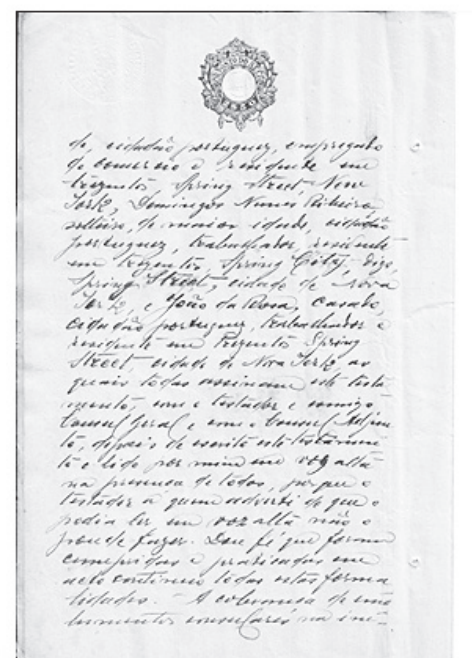 de, cidadão portuguez, empregado
do comercio e residente em
trezentos, Spring Street, Nova
York, Domingos Nunes Ribeiro,
solteiro, de maior idade, cidadão
portuguez, trabalhador, residente
em trezentos, Spring City, digo,
Spring Street, cidade de Nova
York, e João da Rosa, casado,
cidadão portuguez, trabalhador e
residente em trezentos Spring
Street, cidade de Nova York, as
quais todas assinam este testa-
mento, com o testador e comigo
Consul Geral e com o Consul Adjun-
to, depois de escrito este testamen-
to e lido por mim em voz alta
na presença de todos, porque o
testador a quem adverti de que o
podia ler em voz alta não o
poude fazer. Dou fé que foram
cumpridas e praticadas em
acto continuo todas estas forma-
lidades. - A cobrança de emo-
lumentos consulares na im-